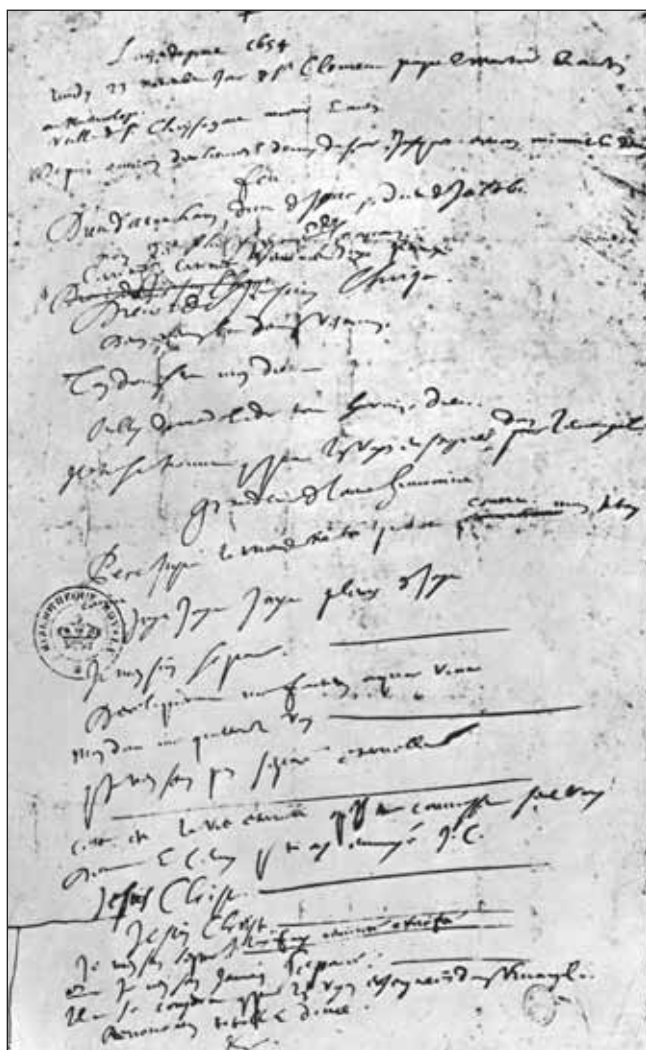 L'an de grace 1654
Lundy 23 novembre jour de St Clement pape et martir et autres
au martirologe
veille de St Chrysogone martir et autres
Depuis environ dix heures et demy du soir jusques environ minuit et demy
Feu
Dieu d'Abraham, Dieu d'Isaac, Dieu de Jacob
non des philosophes et des savans
Certitude certitude sentiment joye paix
Dieu de Jesus Christ
Deum meum et Deum vestrum
Ton Dieu sera mon Dieu
Oubly du monde et de tout hormis Dieu
Il ne se trouve que par les voyes enseignées dans l'Evangile
Grandeur de l'ame humaine
Pere juste le monde ne t'a point connu mais je t'ay
connu
Joye Joye Joye pleurs de joye
BIBLIOTHEQUE ROYALE
Je m'en suis separé
Dereliquerunt me fontem aquae vivae
mon Dieu me quitterez vous
que je n'en sois pas separé eternellement
Cette est la vie eternelle qu'ils te connoissent seul vray
Dieu et celuy que tu as envoyé J.C.
Jesus Christ
Jesus Christ
Je m'en suis separé je l'ay fui renoncé crucifié
que je n'en sois jamais separé
Il ne se conserve que par les voyes enseignées dans l'Evangile
Renonciation totale et douce